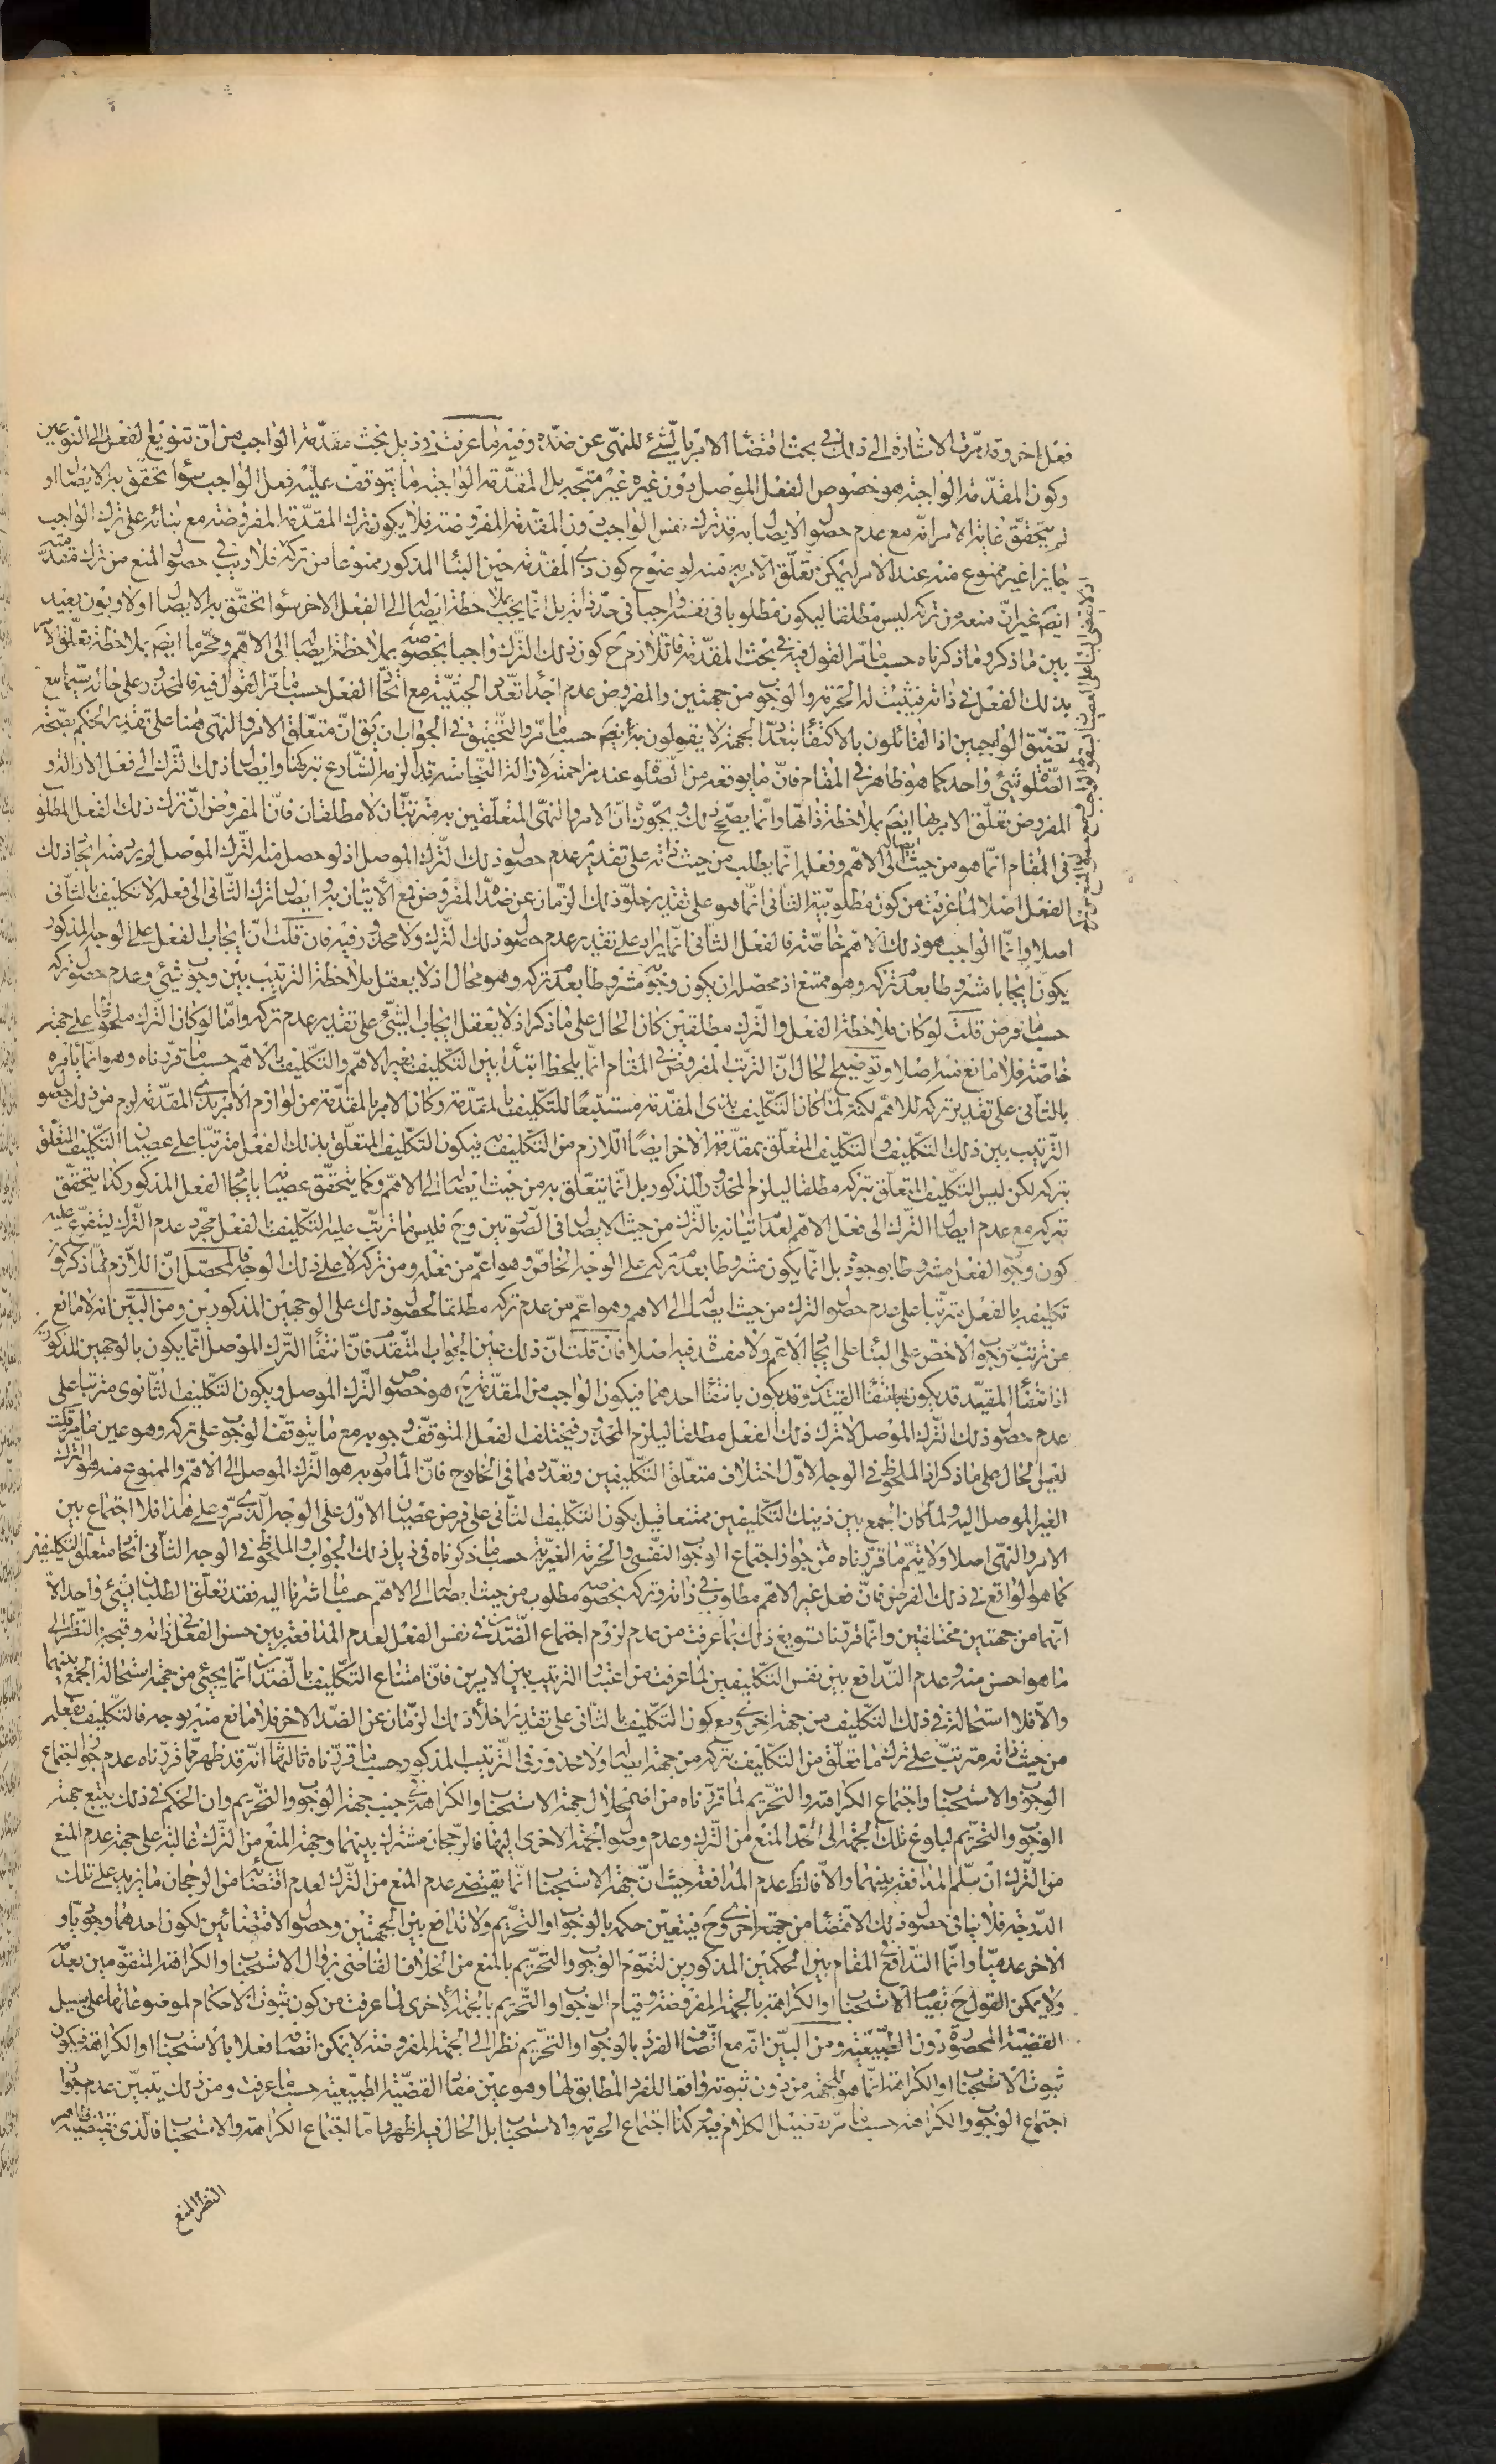 فعل اخر وقد مرّت الاشارة الى ذلك فى بحث اقتضاء الامر بالشئ للنهى عن ضدّه وفيه ما عرفت فى ذيل بحث مقدّمة الواجب من انّ تنويع الفعل الى النوعين
وكون المقدّمة الواجبة هو خصوص الفعل الموصل دون غيره غير متّجه بل المقدّمة الواجبة ما يتوقف عليه فعل الواجب سواء تحقق به الايصال او
لم يتحقّق غاية الامر انّه مع عدم حصول الايصال به قد ترك نفس الواجب دون المقدّمة المفروضة فلا يكون ترك المقدّمة المفروضة مع بنائه على ترك الواجب
جايزا غير ممنوع منه عند الامر ليمكن تعلّق الامر به منه لوضوح كون ذى المقدّمة حين البناء المذكور ممنوعا من تركه فلا ريب فى حصول المنع من ترك مقدّمته
ايضا غير انّ منعه من تركه ليس مطلقا ليكون مطلوبا فى نفسه واجبا فى حدّ ذاته بل انّما يجب بملاحظة ايصاله الى الفعل الاخر سواء تحقّق به الايصال او لا وبون بعيد
بين ما ذكر وما ذكرناه حسب ما مرّ القول فيه فى بحث المقدّمة فاللازم ح كون ذلك الترك واجبا بخصوصه بملاحظة ايصاله الى الاهمّ ومحرّما ايضا بملاحظة تعلّق الامر
بذلك الفعل فى ذاته فيثبت له الحرمة والوجوب من جهتين والمفروض عدم اجداء تعدّد الحيثيّة مع اتّحاد الفعل حسب ما مرّ القول فيه فالمحذور على حاله سيّما مع
تضيّق الواجبين اذ القائلون بالاكتفاء بتعدّد الجهة لا يقولون به ايضا حسب ما مرّ والتحقيق فى الجواب ان يق انّ متعلّق الامر والنهى هنا على تقدير الحكم بصحّة
الصّلوة شئ واحد كما هو ظاهر فى المقام فانّ ما يوقعه من الصّلوة عند مزاحمته لازالة النّجاسة قد الزمه الشّارع بتركها وايصال ذلك الترك الى فعل الازالة و
المفروض تعلّق الامر بها ايضا بملاحظة ذاتها وانّما يصحّ ذلك ويجوز انّ الامر والنهى المتعلّقين به مترتبان لا مطلقان فانّ المفروض انّ ترك ذلك الفعل المطلوب
فى المقام انّما هو من حيث ايصاله الى الاهمّ وفعله انّما يطلب من حيث ذاته على تقدير عدم حصول ذلك الترك الموصل اذ لو حصل منه الترك الموصل لم يرد منه ايجاد ذلك
الفعل اصلا لما عرفت من كون مطلوبيّة الثانى انّما هو على تقدير خلوّ ذلك الزمان عن ضدّه المفروض فمع الاتيان به وايصال ترك الثّانى الى فعله لا تكليف بالثّانى
اصلا وانّما الواجب هو ذلك الاهمّ خاصّة فالفعل الثانى انّما يراد على تقدير عدم حصول ذلك الترك ولا محذور فيه فان قلت انّ ايجاب الفعل على الوجه المذكور
يكون ايجابا مشروطا بعدم تركه وهو ممتنع اذ محصّله ان يكون وجوبه مشروطا بعدم تركه وهو محال اذ لا يعقل ملاحظة الترتيب بين وجوب شئ وعدم حصول تركه
حسب ما فرض قلت لو كان ملاحظة الفعل والترك مطلقين كان الحال على ما ذكر اذ لا يعقل ايجاب الشّئ على تقدير عدم تركه وامّا لو كان الترك ملحوظا على جهة
خاصّة فلا مانع منه اصلا وتوضيح الحال انّ الترتّب المفروض فى المقام انّما يلحظ ابتداء بين التّكليف بغير الاهمّ والتّكليف بالاهمّ حسب ما قرّرناه وهو انّما يامره
بالثّانى على تقدير تركه للاهمّ لكنه لمّا كان التّكليف بذى المقدّمة مستتبعا للتكليف بالمقدّمة وكان الامر بالمقدّمة من لوازم الامر بذى المقدّمة لزم من ذلك حصول
الترتيب بين ذلك التكليف والتكليف المتعلّق بمقدّمة الاخر ايضا اللازم من التكليف به فيكون التكليف المتعلّق بذلك الفعل مترتّبا على عصيان التكليف المتعلّق
بتركه لكن ليس التكليف المتعلّق بتركه مطلقا ليلزم المحذور المذكور بل انّما يتعلّق به من حيث ايصاله الى الاهمّ وكما يتحقّق عصيانه بايجاد الفعل المذكور كذا يتحقّق
تركه مع عدم ايصال الترك الى فعل الاهمّ لعدم اتيانه بالترك من حيث الايصال فى الصّورتين وح فليس ما ترتّب عليه التكليف بالفعل مجرّد عدم الترك ليتفرّع عليه
كون وجوب الفعل مشروطا بوجوده بل انّما يكون مشروطا بعدم تركه على الوجه الخاصّ وهو اعمّ من فعله ومن تركه لا على ذلك الوجه فالمحصّل انّ اللازم ممّا ذكر كون
تكليفه بالفعل مترتّبا على عدم حصول الترك من حيث ايصاله الى الاهم وهو اعمّ من عدم تركه مطلقا لحصول ذلك على الوجهين المذكورين ومن البيّن انّه لا مانع
من ترتّب وجوب الاخصّ على البناء على ايجاد الاعمّ ولا مفسدة فيه اصلا فان قلت انّ ذلك عين الجواب المتقدّم فانّ انتفاء الترك الموصل انّما يكون بالوجهين المذكورين
اذ انتفاء المقيّد قد يكون بانتفاء القيدين وقد يكون بانتفاء احدهما فيكون الواجب من المقدّمة ح هو خصوص الترك الموصل ويكون التكليف الثانوى مترتبا على
عدم حصول ذلك الترك الموصل لا ترك ذلك الفعل مطلقا ليلزم المحذور فيختلف الفعل المتوقّف وجوبه مع ما يتوقف الوجوب على تركه وهو عين ما مرّ قلت
ليس الحال على ما ذكر اذ الملحوظ فى الوجه الاوّل اختلاف متعلّق التكليفين وتعدّدهما فى الخارج فانّ المأمور به هو الترك الموصل الى الاهمّ والممنوع منه هو الترك
الغير الموصل اليه ولمّا كان الجمع بين ذينك التّكليفين ممتنعا قيل بكون التكليف الثّانى على فرض عصيان الاوّل على الوجه الّذى مرّ وعلى هذا فلا اجتماع بين
الامر والنهى اصلا ولا يتمّ ما قرّرناه من جواز اجتماع الوجوب النّفسى والحرمة الغيريّة حسب ما ذكرناه فى ذيل ذلك الجواب والملحوظ فى الوجه الثّانى اتّحاد متعلّق التكليفين
كما هو الواقع فى ذلك الفرض فانّ فعل غير الاهمّ مطلوب فى ذاته وتركه بخصوصه مطلوب من حيث ايصاله الى الاهمّ حسب ما اشرنا اليه فقد تعلّق الطلب بشئ واحد الّا
انّهما من جهتين مختلفتين وانّما قرّرنا تسويغ ذلك بما عرفت من عدم لزوم اجتماع الضّدّين فى نفس الفعل لعدم المدافعة بين حسن الفعل فى ذاته وقبحه بالنّظر الى
ما هو احسن منه وعدم التدافع بين نفس التّكليفين لما عرفت من اعتبار الترتيب بين الامرين فانّ امتناع التكليف بالضّدّين انّما يجئ من جهة استحالة الجمع بينهما
والّا فلا استحالة فى ذلك التكليف من جهة اخرى ومع كون التكليف بالثّانى على تقدير اخلاء ذلك الزّمان عن الضدّ الاخر فلا مانع منه بوجه فالتّكليف بفعله
من حيث ذاته مترتب على ترك ما تعلّق من التكليف بتركه من جهة ايصاله ولا محذور فى الترتيب المذكور حسب ما قرّرناه ثالثها انّه قد ظهر ممّا قرّرناه عدم جواز اجتماع
الوجوب والاستحباب واجتماع الكراهة والتحريم لما قرّرناه من اضمحلال جهة الاستحباب والكراهة فى جنب جهة الوجوب والتحريم وان الحكم فى ذلك يتبع جهة
الوجوب والتحريم لبلوغ تلك الجهة الى حدّ المنع من الترك وعدم وصول الجهة الاخرى اليهما فالرّجحان مشترك بينهما وجهة المنع من الترك غالبة على جهة عدم المنع
من الترك ان سلّم المدافعة بينهما والّا فالظ عدم المدافعة حيث انّ جهة الاستحباب انّما يقتضى عدم المنع من الترك لعدم اقتضائه من الرجحان ما يزيد على تلك
الدّرجة فلا ينافى حصول ذلك الاقتضاء من جهة اخرى وح فيتعيّن حكمه بالوجوب او التحريم ولا تدافع بين الجهتين وحصول الاقتضائين لكون احدهما وجوديّا و
الاخر عدميّا وانّما التدافع فى المقام بين الحكمين المذكورين لتقوّم الوجوب والتحريم بالمنع من الخلاف القاضى بزوال الاستحباب والكراهة المتقوّمين بعدمه
ولا يمكن القول ح بقيام الاستحباب او الكراهة بالجهة المفروضة وقيام الوجوب او التحريم بالجهة الاخرى لما عرفت من كون ثبوت الاحكام لموضوعاتها على سبيل
القضيّة المحصورة دون الطّبيعيّة ومن البيّن انّه مع اتّصاف الفرد بالوجوب او التحريم نظرا الى الجهة المفروضة لا يمكن اتّصافه فعلا بالاستحباب او الكراهة فيكون
ثبوت الاستحباب او الكراهة انّما هو للجهة من دون ثبوته واقعا للفرد المطابق لها وهو عين مفاد القضيّة الطّبيعيّة حسب ما عرفت ومن ذلك يتبيّن عدم جواز
اجتماع الوجوب والكراهة حسب ما مرّ تفصيل الكلام فيه وكذا اجتماع الحرمة والاستحباب بل الحال فيه اظهر وامّا اجتماع الكراهة والاستحباب فالّذى يقتضيه ظاهر
النظر المنع